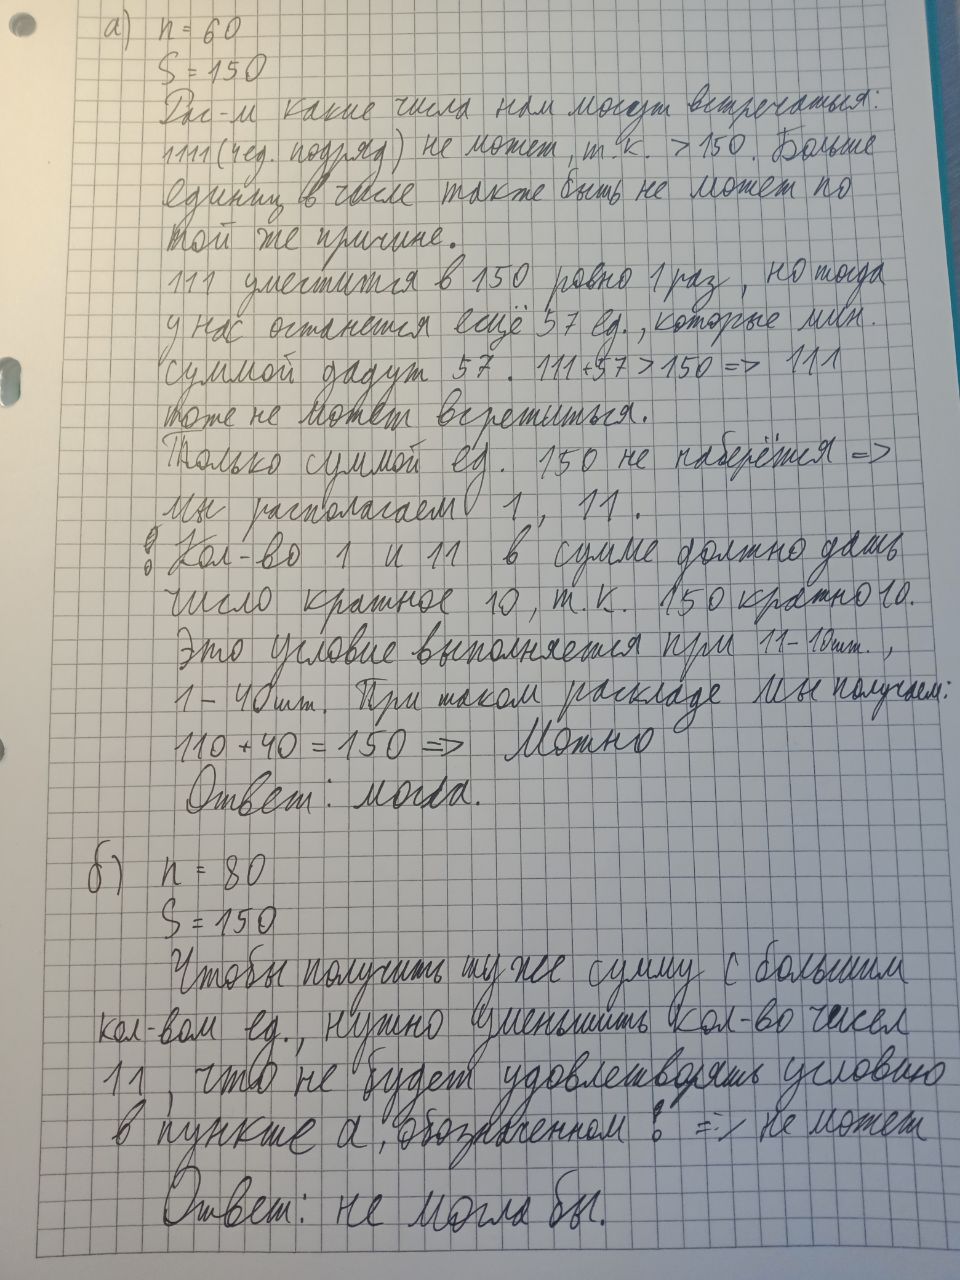 а) n = 60
S = 150
Рас-м какие числа нам могут встречаться:
1111 (4 ед. подряд) не может, т.к. > 150. Больше
единиц в числе также быть не может по
той же причине.
111 уместится в 150 ровно 1 раз, но тогда
у нас останется ещё 57 ед., которые мин.
суммой дадут 57. 111+57 > 150 => 111
тоже не может встретиться.
Только суммой ед. 150 не наберётся =>
мы располагаем 1, 11.
! Кол-во 1 и 11 в сумме должно дать
число кратное 10, т.к. 150 кратно 10.
Это условие выполняется при 11 - 10шт.,
1 - 40шт. При таком раскладе мы получаем:
110 + 40 = 150 => Можно
Ответ: могла.
б) n = 80
S = 150
Чтобы получить ту же сумму с большим
кол-вом ед., нужно уменьшить кол-во чисел
11, что не будет удовлетворять условию
в пункте а, обозначенном ! => не может
Ответ: не могла бы.